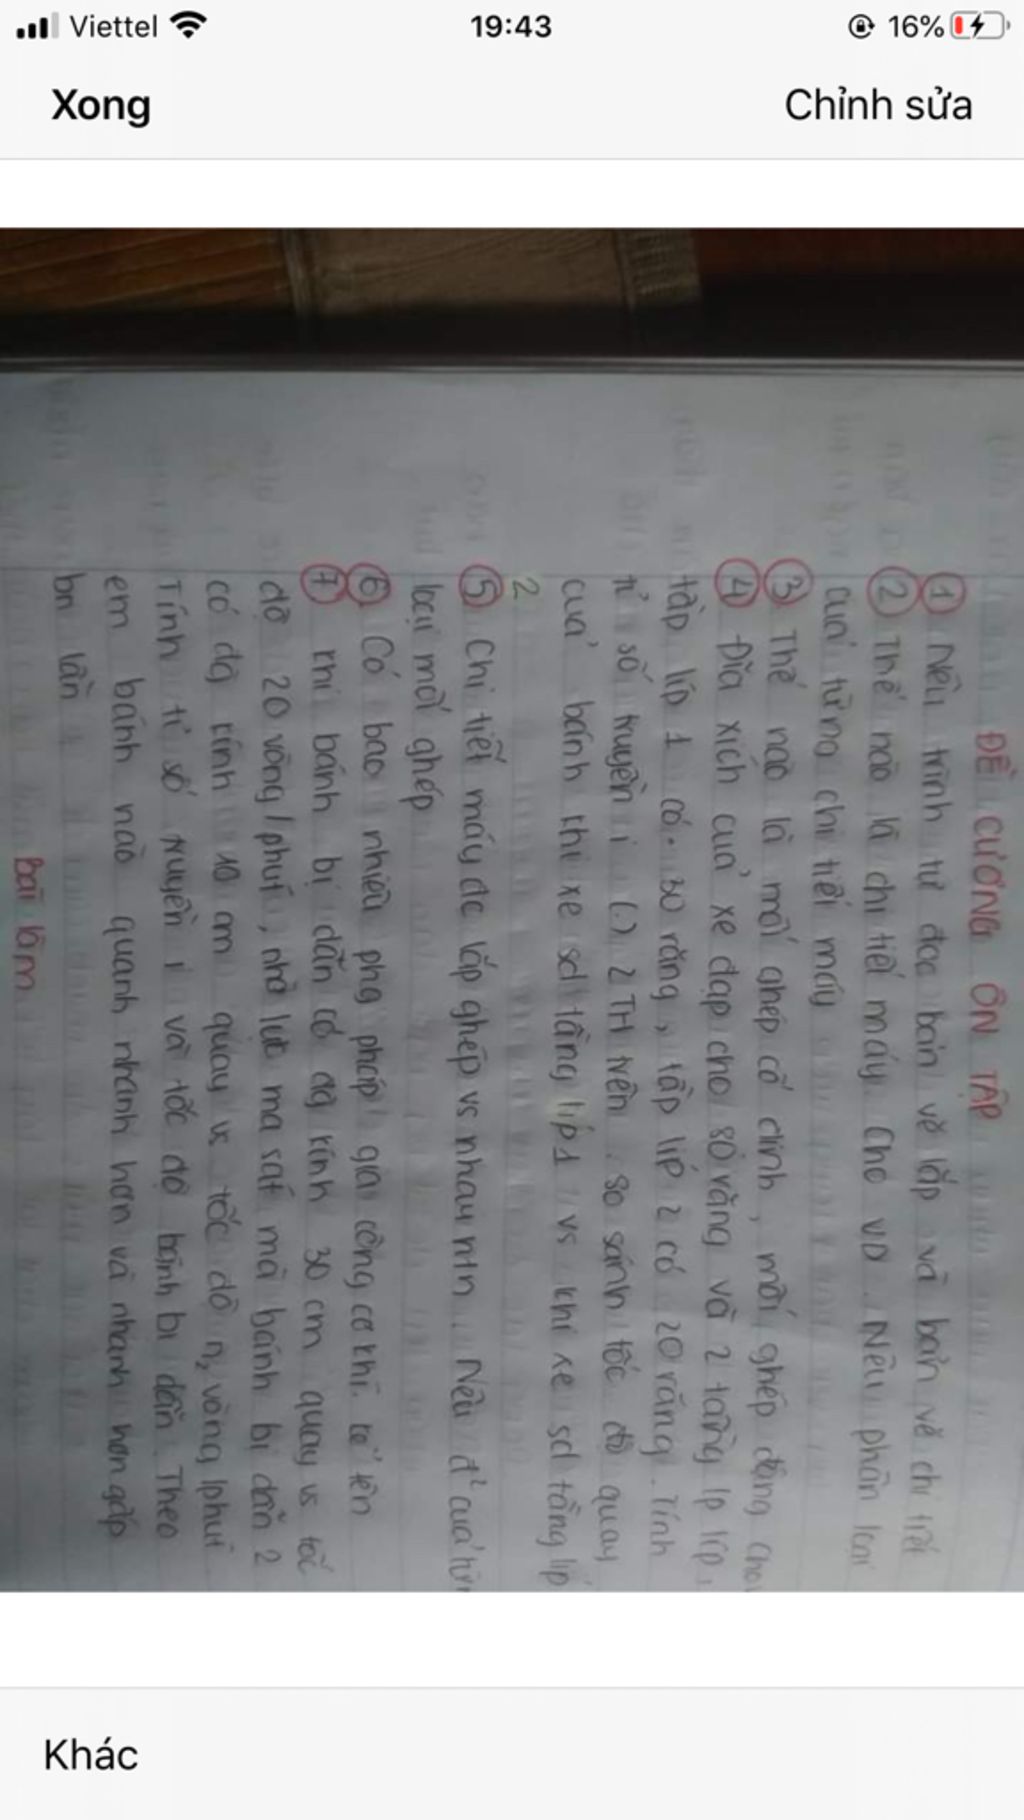 Viettel 19:43 16%
Xong Chỉnh sửa
ĐỀ CƯƠNG ÔN TẬP
① Nêu trình tự đọc bản vẽ lắp và bản vẽ chi tiết
② Thế nào là chi tiết máy. Cho VD. Nêu phân loại
của từng chi tiết máy
③ Thế nào là mối ghép cố định, mối ghép động cho
④ Đĩa xích của xe đạp cho 80 răng và 2 tầng líp,
tầng líp 1 có 30 răng, tầng líp 2 có 20 răng. Tính
tỉ số truyền i (.) 2 TH trên. So sánh tốc độ quay
của bánh khi xe sd tầng líp 1 vs khi xe sd tầng líp
2
⑤ Chi tiết máy đc lắp ghép vs nhau ntn. Nêu đ² của từ
loại mối ghép
⑥ Có bao nhiêu phg pháp gia công cơ khí. Kể tên
⑦ Khi bánh bị dẫn có đg kính 30 cm quay vs tốc
độ 20 vòng/phút, nhờ lực ma sát mà bánh bị dẫn 2
có đg kính 10 cm quay vs tốc độ n₂ vòng/phút
Tính tỉ số truyền i và tốc độ bánh bị dẫn. Theo
em bánh nào quanh nhanh hơn và nhanh hơn gấp
bn lần
Bài làm
Khác